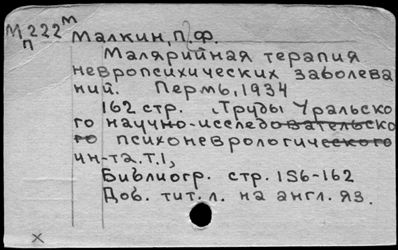 М222м
п
Малкин, П.Ф.
Малярийная терапия
невропсихических заболева
ний. Пермь, 1934
162 стр. (Труды Уральско
го научно-исследовательско
го психоневрологического
ин-та. Т.1,
Библиогр. стр. 156-162
Доб. тит. л. на англ. яз.
x